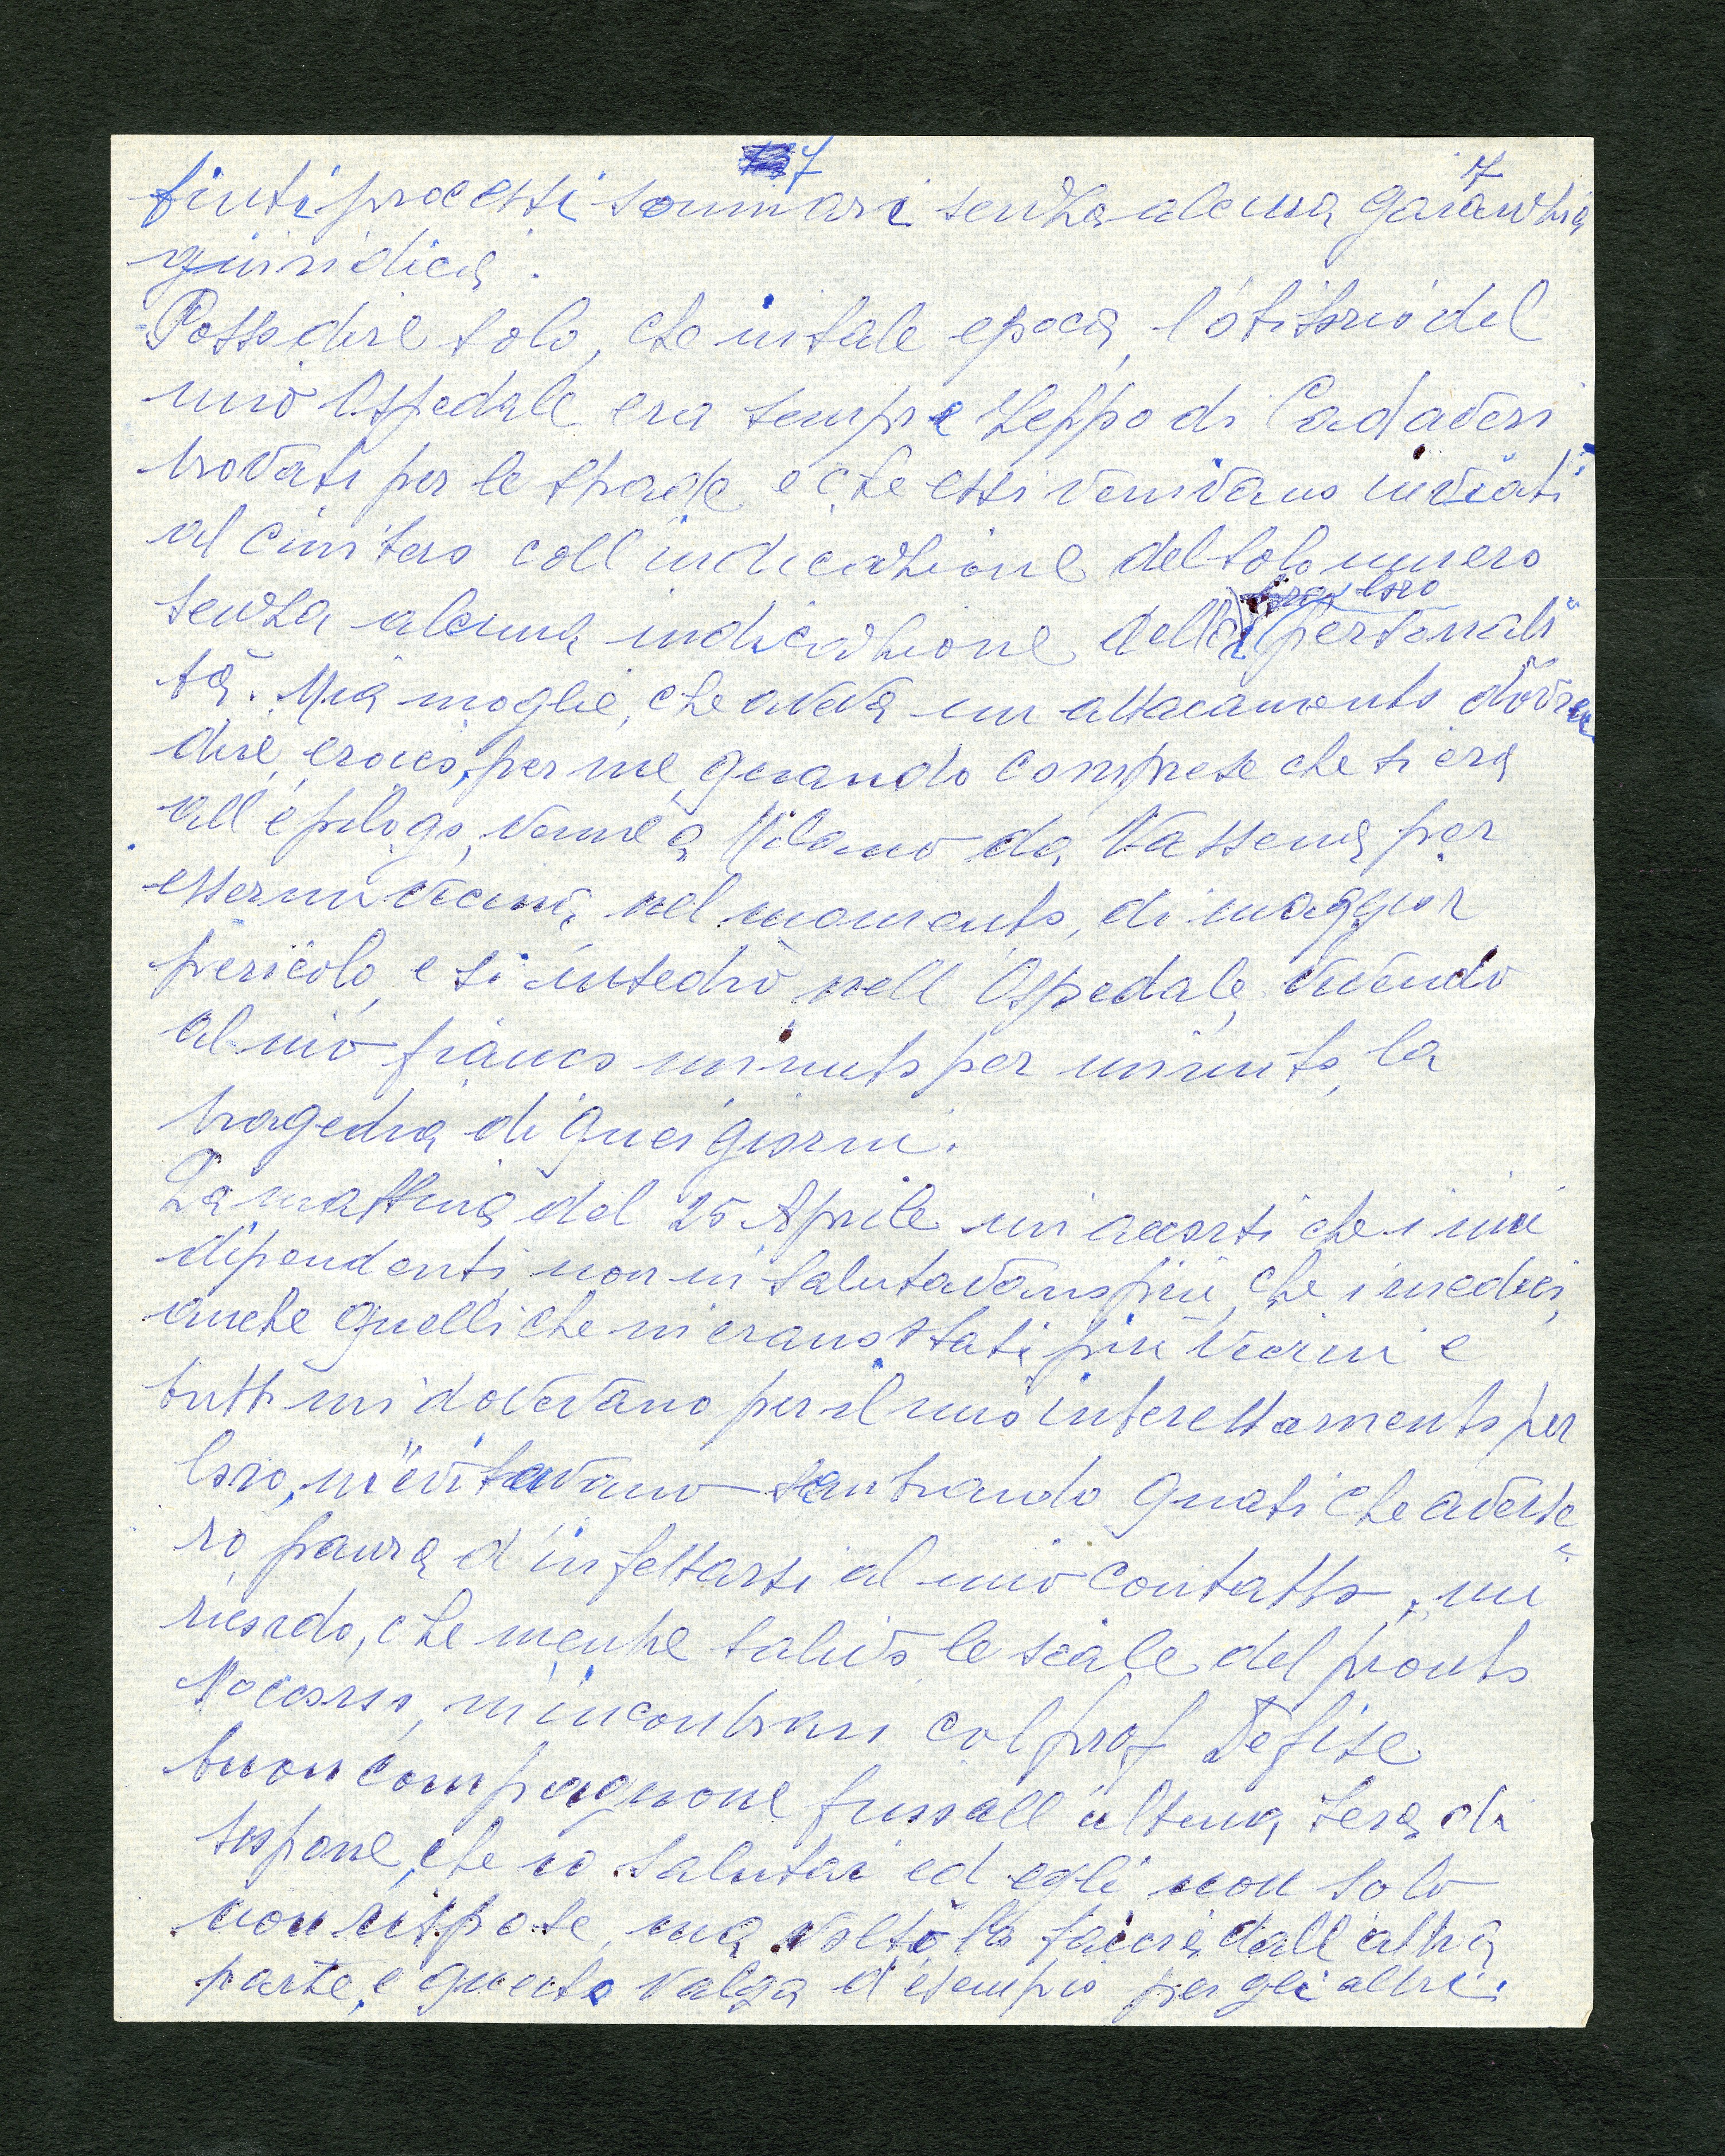 7 17
finti processi sommari senza alcuna garanzia
giuridica.
Posso dire solo, che in tale epoca, l'obitorio del
mio Ospedale era sempre zeppo di Cadaveri
trovati per le strade e che essi venivano inviati
al cimitero coll'indicazione del solo numero
loro
senza alcuna indicazione della personali
tà. Mia moglie, che aveva un attacamento dovrei
dire, eroico, per me, quando comprese che si era
all'epilogo, venne a Milano da Vassena per
essermi vicina, nel momento, di maggior
pericolo, e si insediò nell'Ospedale, vivendo
al mio fianco minuto per minuto, la
tragedia di quei giorni.
La mattina del 25 Aprile mi accorsi che i miei
dipendenti non mi salutavano più, che i medici,
anche quelli che mi erano stati più vicini e
tutti mi dovevano per il mio interessamento per
loro, m'evitavano sembrando quasi che avesse
ro paura d'infettarsi al mio contatto, mi
ricordo, che mentre salivo le scale del pronto
soccorso, m'incontrai col prof Defise
buon compagnone fino all'ultima sera di
che io salutai ed egli non solo
non rispose, ma voltò la faccia dall'altra
parte, e questo valga d'esempio per gli altri.